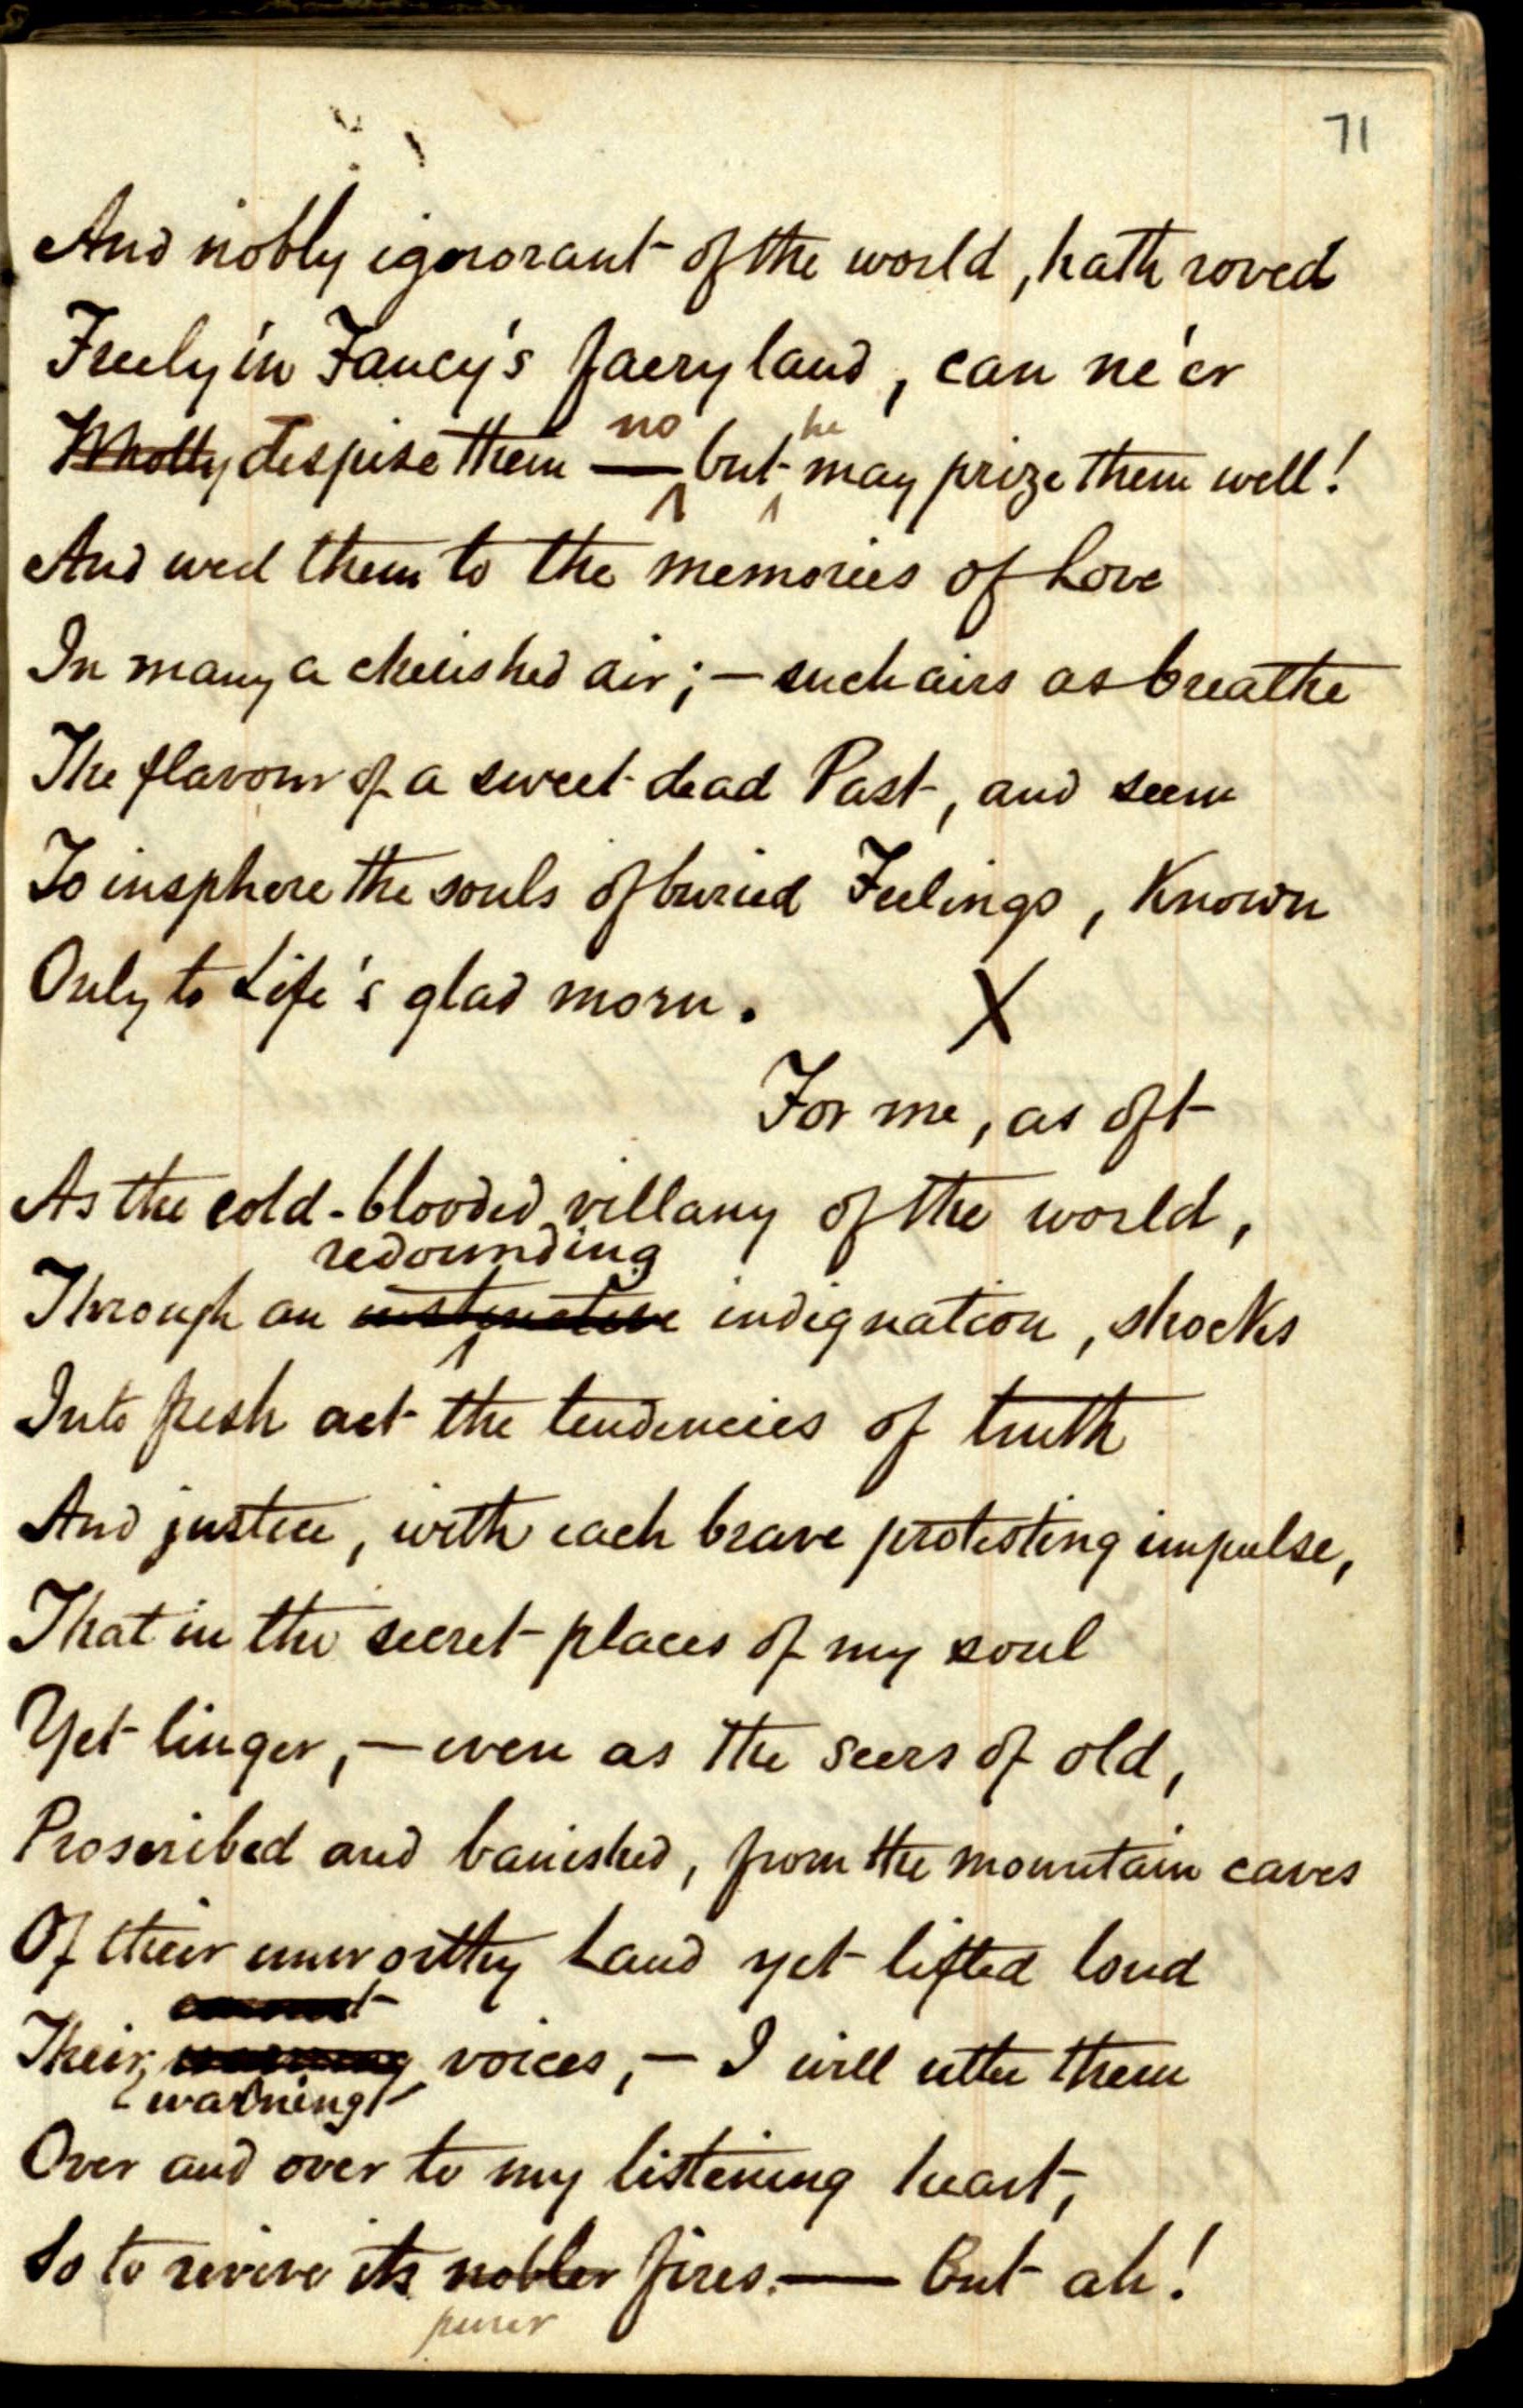 71
And nobly ignorant of the world, hath roved
Freely in Fancy's faery land, can ne'er
no he
Wholly despise them — but may prize them well!
And wed them to the memories of Love
In many a cherished air; — such airs as breathe
The flavour of a sweet dead Past, and seem
To insphere the souls of buried Feelings, known
Only to Life's glad morn. X
For me, as oft
As the cold-blooded villany of the world,
redounding
Through an instinctive indignation, shocks
Into fresh act the tendencies of truth
And justice, with each brave protesting impulse,
That in the secret places of my soul
Yet linger, — even as the seers of old,
Proscribed and banished, from the mountain caves
Of their unworthy Land yet lifted loud
Their warning voices, — I will utter them
warning
Over and over to my listening heart,
So to revive its nobler fires. — But ah!
purer